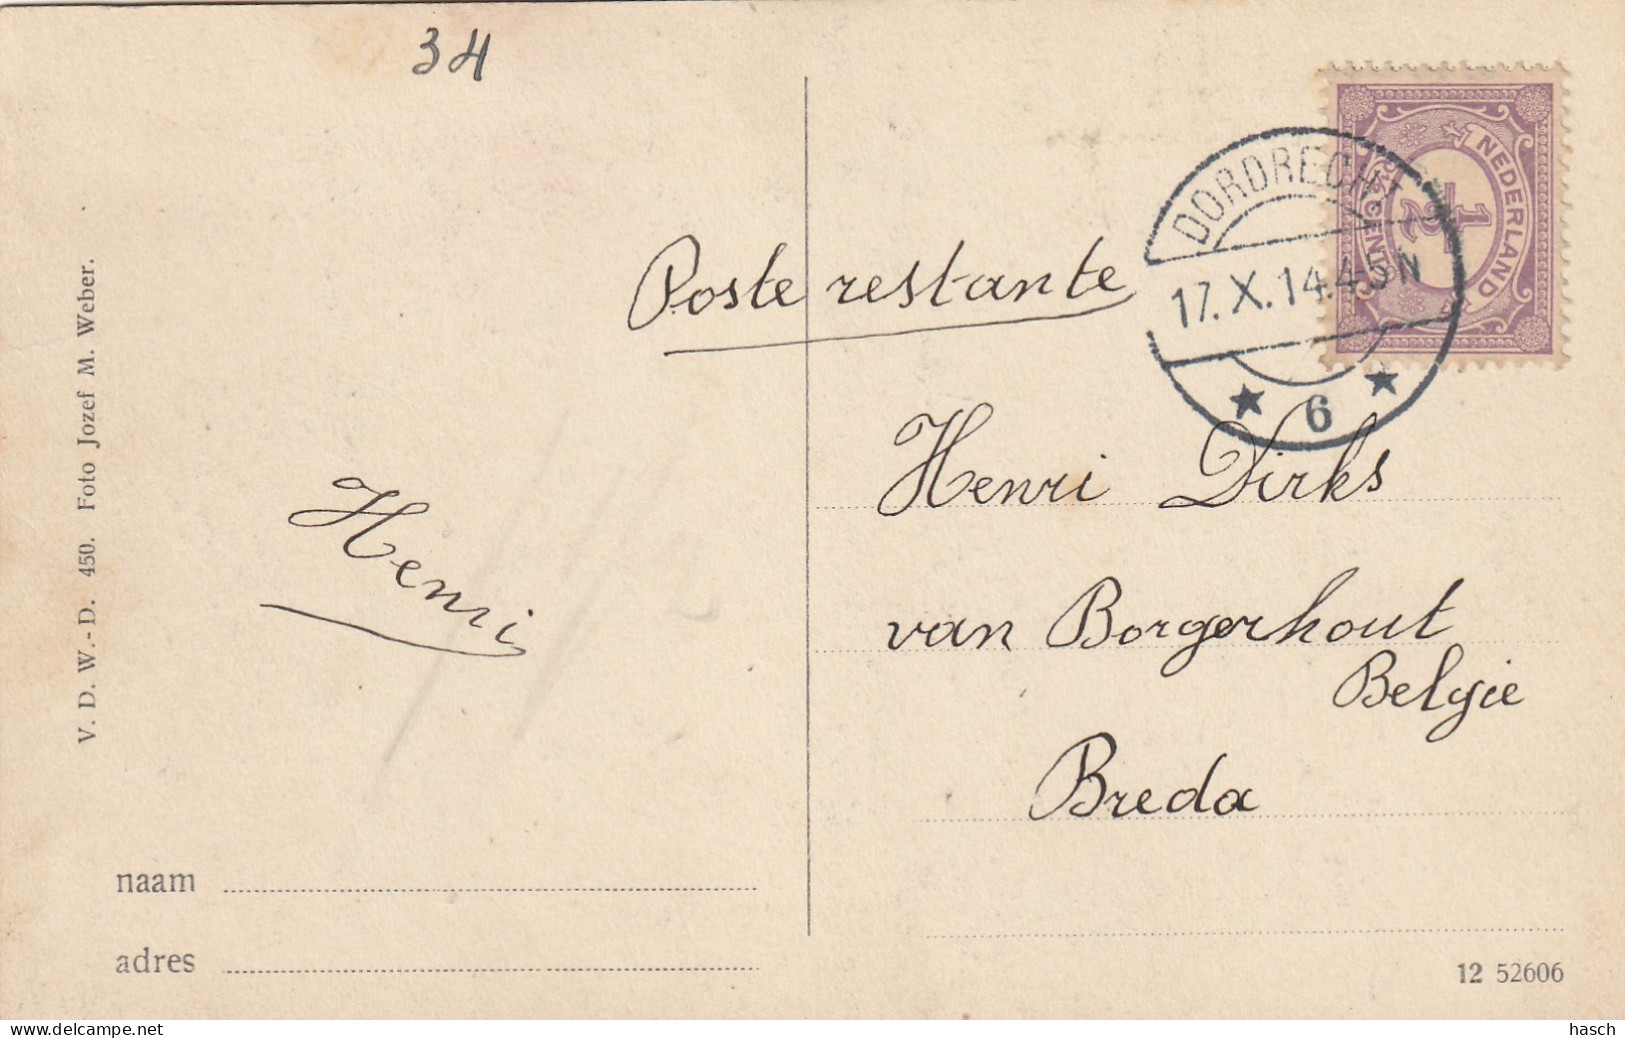 34
NEDERLAND
1/2 CENT
DORDRECHT
17.X.14.4-5N
6
Poste restante
Henri Dirks
van Borgerhout
Belgie
Breda
Henri
V. D. W.-D. 450. Foto Jozef M. Weber.
naam
adres
12 52606
delcampe.net
hasch